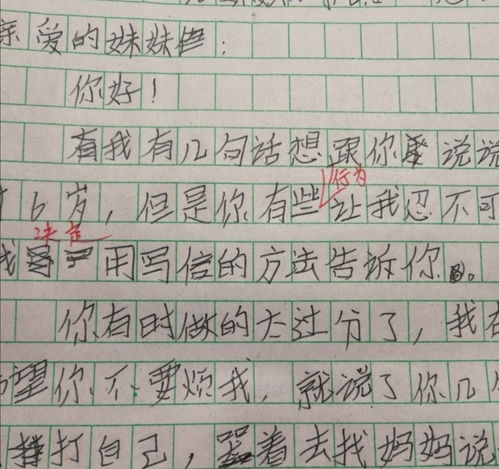 亲爱的妹妹:
你好!
有我有几句话想跟你说说
6岁,但是你有些行为让我忍不可
我决定用写信的方法告诉你。
你有时做的太过分了,我在
望你不要烦我,就说了你几
打自己,哭着去找妈妈说